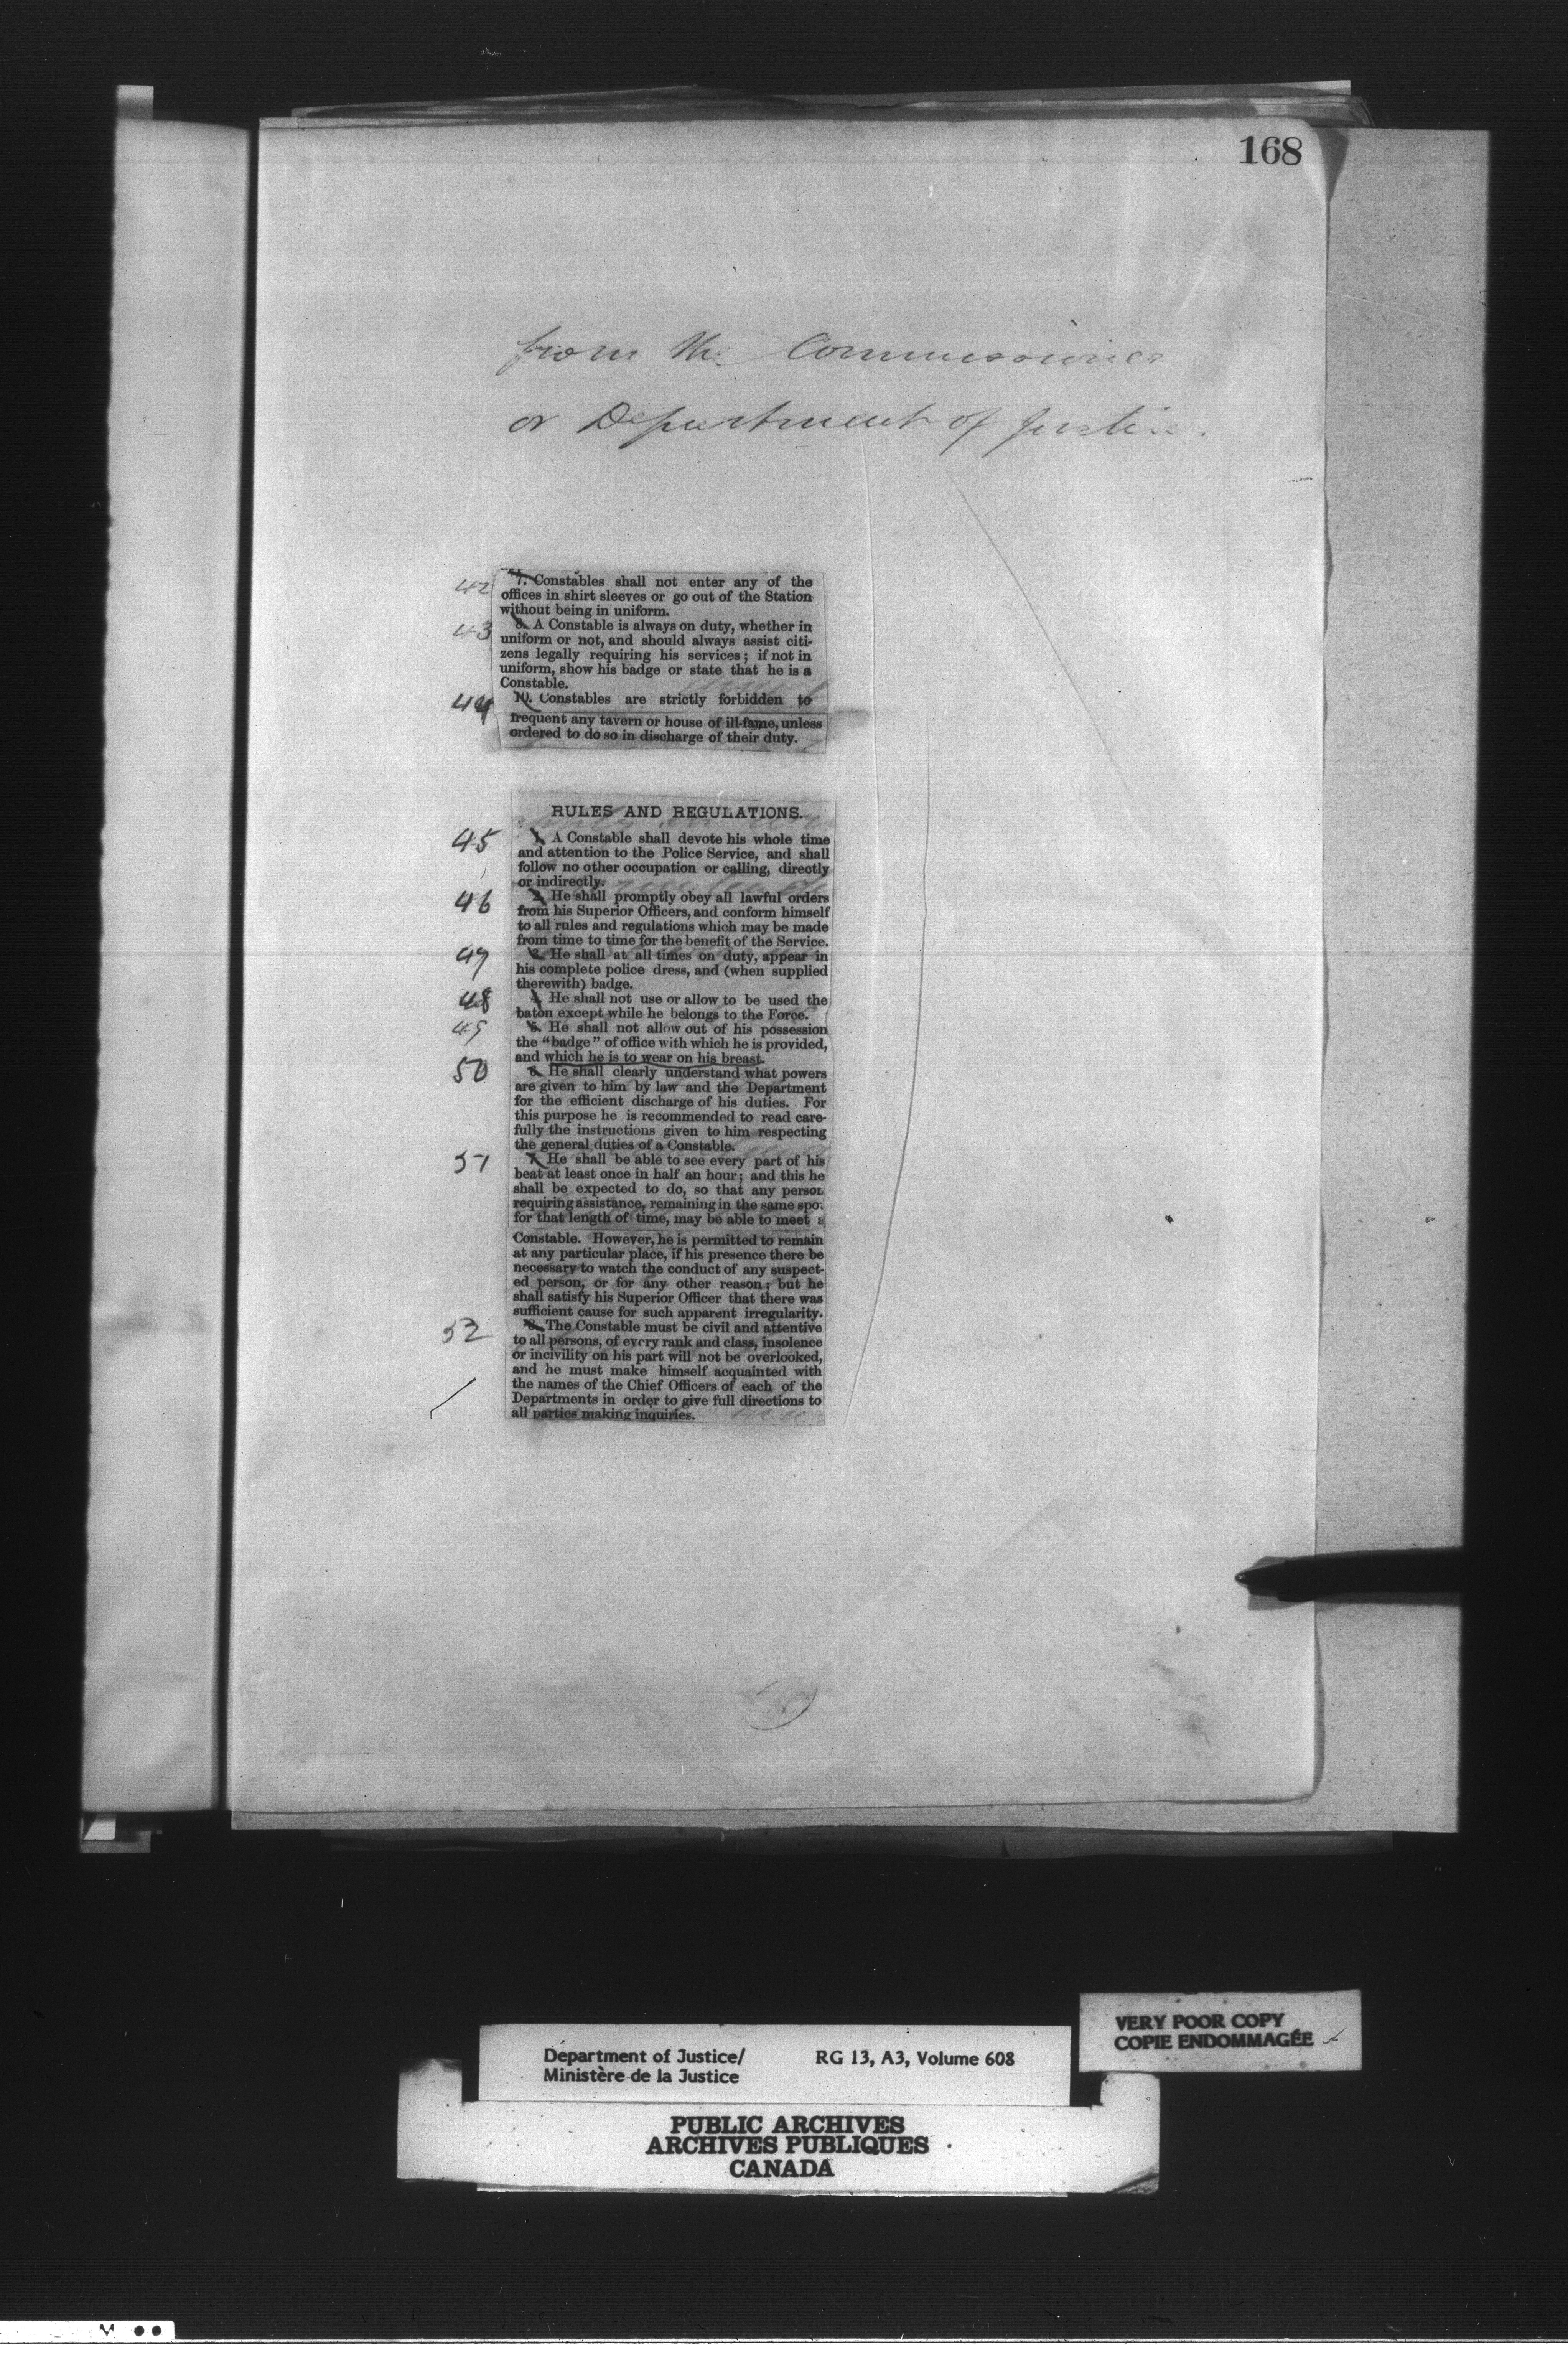 168
from the Commissioner
or Department of Justice.
42 7. Constables shall not enter any of the
offices in shirt sleeves or go out of the Station
without being in uniform.
43 8. A Constable is always on duty, whether in
uniform or not, and should always assist citi-
zens legally requiring his services; if not in
uniform, show his badge or state that he is a
Constable.
44 10. Constables are strictly forbidden to
frequent any tavern or house of ill-fame, unless
ordered to do so in discharge of their duty.
RULES AND REGULATIONS.
45 1. A Constable shall devote his whole time
and attention to the Police Service, and shall
follow no other occupation or calling, directly
or indirectly.
46 2. He shall promptly obey all lawful orders
from his Superior Officers, and conform himself
to all rules and regulations which may be made
from time to time for the benefit of the Service.
47 3. He shall at all times on duty, appear in
his complete police dress, and (when supplied
therewith) badge.
48 4. He shall not use or allow to be used the
baton except while he belongs to the Force.
49 5. He shall not allow out of his possession
the "badge" of office with which he is provided,
and which he is to wear on his breast.
50 6. He shall clearly understand what powers
are given to him by law and the Department
for the efficient discharge of his duties. For
this purpose he is recommended to read care-
fully the instructions given to him respecting
the general duties of a Constable.
51 7. He shall be able to see every part of his
beat at least once in half an hour; and this he
shall be expected to do, so that any person
requiring assistance, remaining in the same spot
for that length of time, may be able to meet a
Constable. However, he is permitted to remain
at any particular place, if his presence there be
necessary to watch the conduct of any suspect-
ed person, or for any other reason; but he
shall satisfy his Superior Officer that there was
sufficient cause for such apparent irregularity.
52 8. The Constable must be civil and attentive
to all persons, of every rank and class, insolence
or incivility on his part will not be overlooked,
and he must make himself acquainted with
the names of the Chief Officers of each of the
Departments in order to give full directions to
all parties making inquiries.
VERY POOR COPY
COPIE ENDOMMAGÉE
Department of Justice/ RG 13, A3, Volume 608
Ministère de la Justice
PUBLIC ARCHIVES
ARCHIVES PUBLIQUES
CANADA